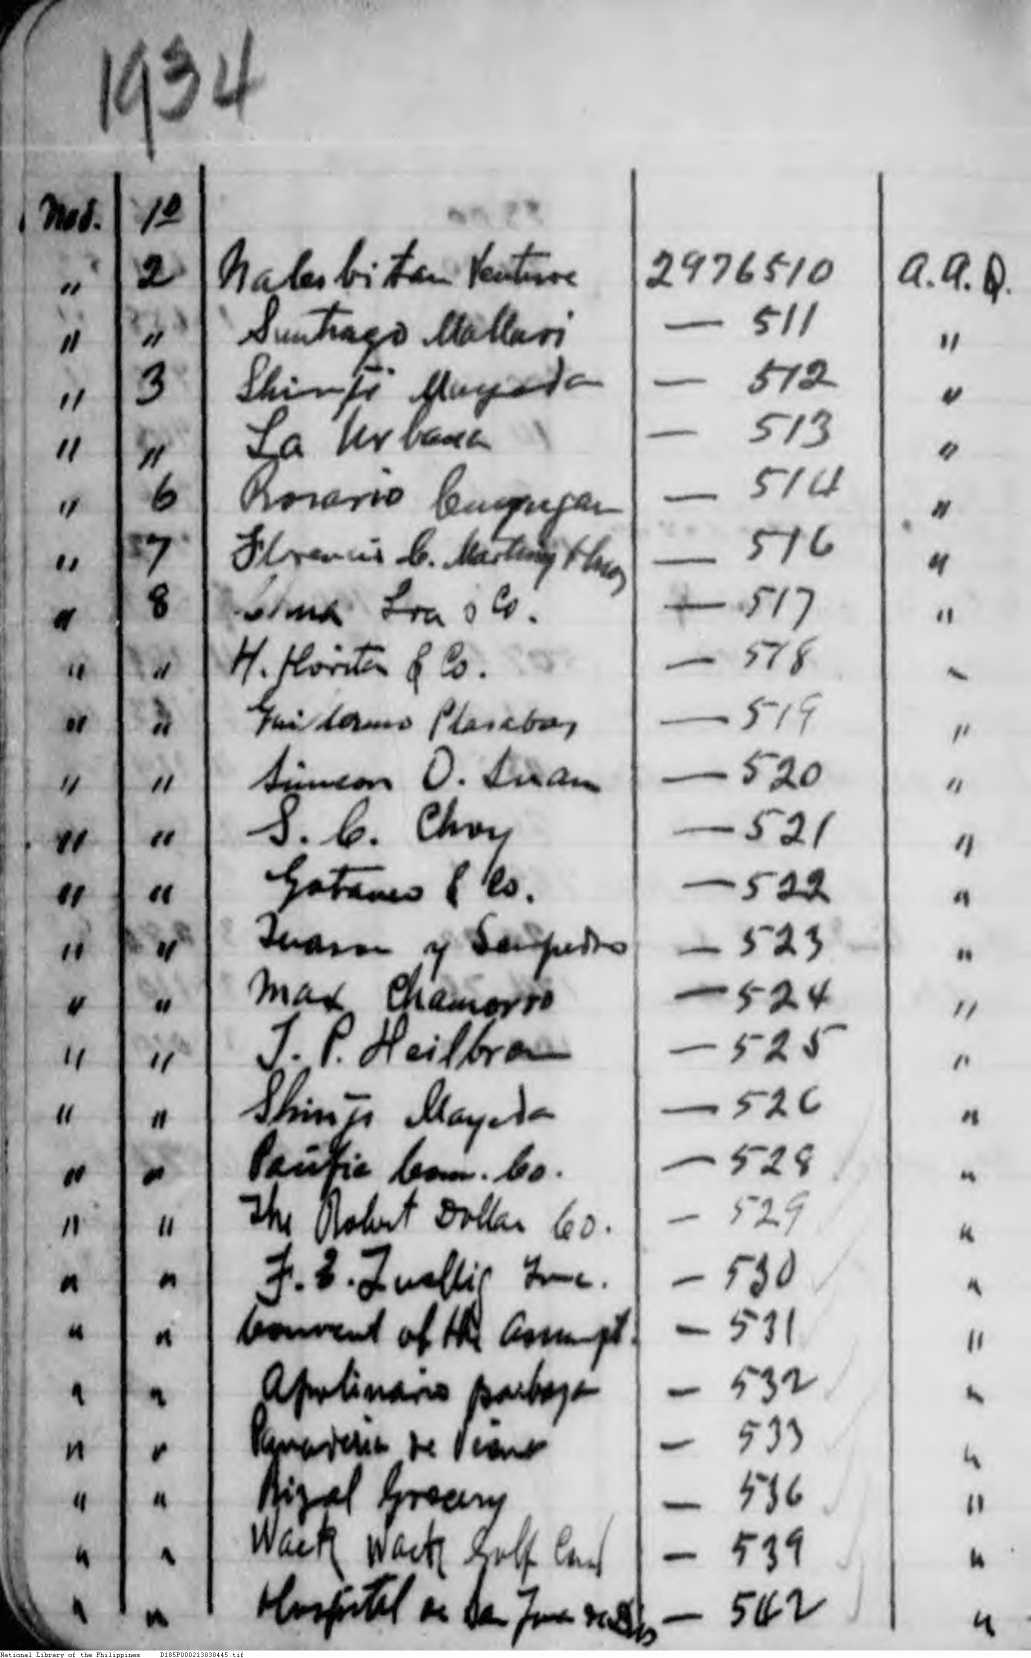 1934
Nov. 10
" 2 Nalesbitan Venture 2976510 A.A.D.
" " Santiago Mallari — 511 "
" 3 Shinji Mayeda — 512 "
" " La Urbana — 513 "
" 6 Rosario Cunyugan — 514 "
" 7 Florencio C. Martinez — 516 "
" 8 & Co. — 517 "
" " H. & Co. — 518
" " Guillermo — 519 "
" " Simeon O. — 520 "
" " S. C. Choy — 521 "
" " Gotauco & Co. — 522 "
" " Tuason y Sampedro — 523 "
" " Max Chamorro — 524 "
" " J. P. Heilbron — 525 "
" " Shinji Mayeda — 526 "
" " Pacific Com. Co. — 528 "
" " The Robert Dollar Co. — 529 "
" " F. E. Zuellig Inc. — 530 "
" " Convent of the Assumpt. — 531 "
" " Apolinario — 532 "
" " Panaderia de — 533 "
" " Rizal Grocery — 536 "
" " Wack Wack Golf — 539 "
" " Hospital de San Juan de Dios — 542 "
National Library of the Philippines D185P000213838445.tif